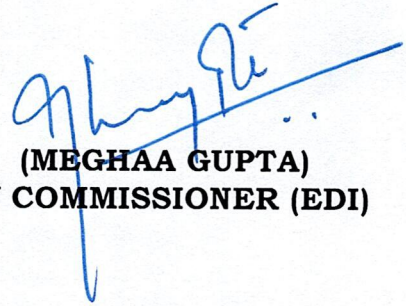 (MEGHAA GUPTA)
COMMISSIONER (EDI)